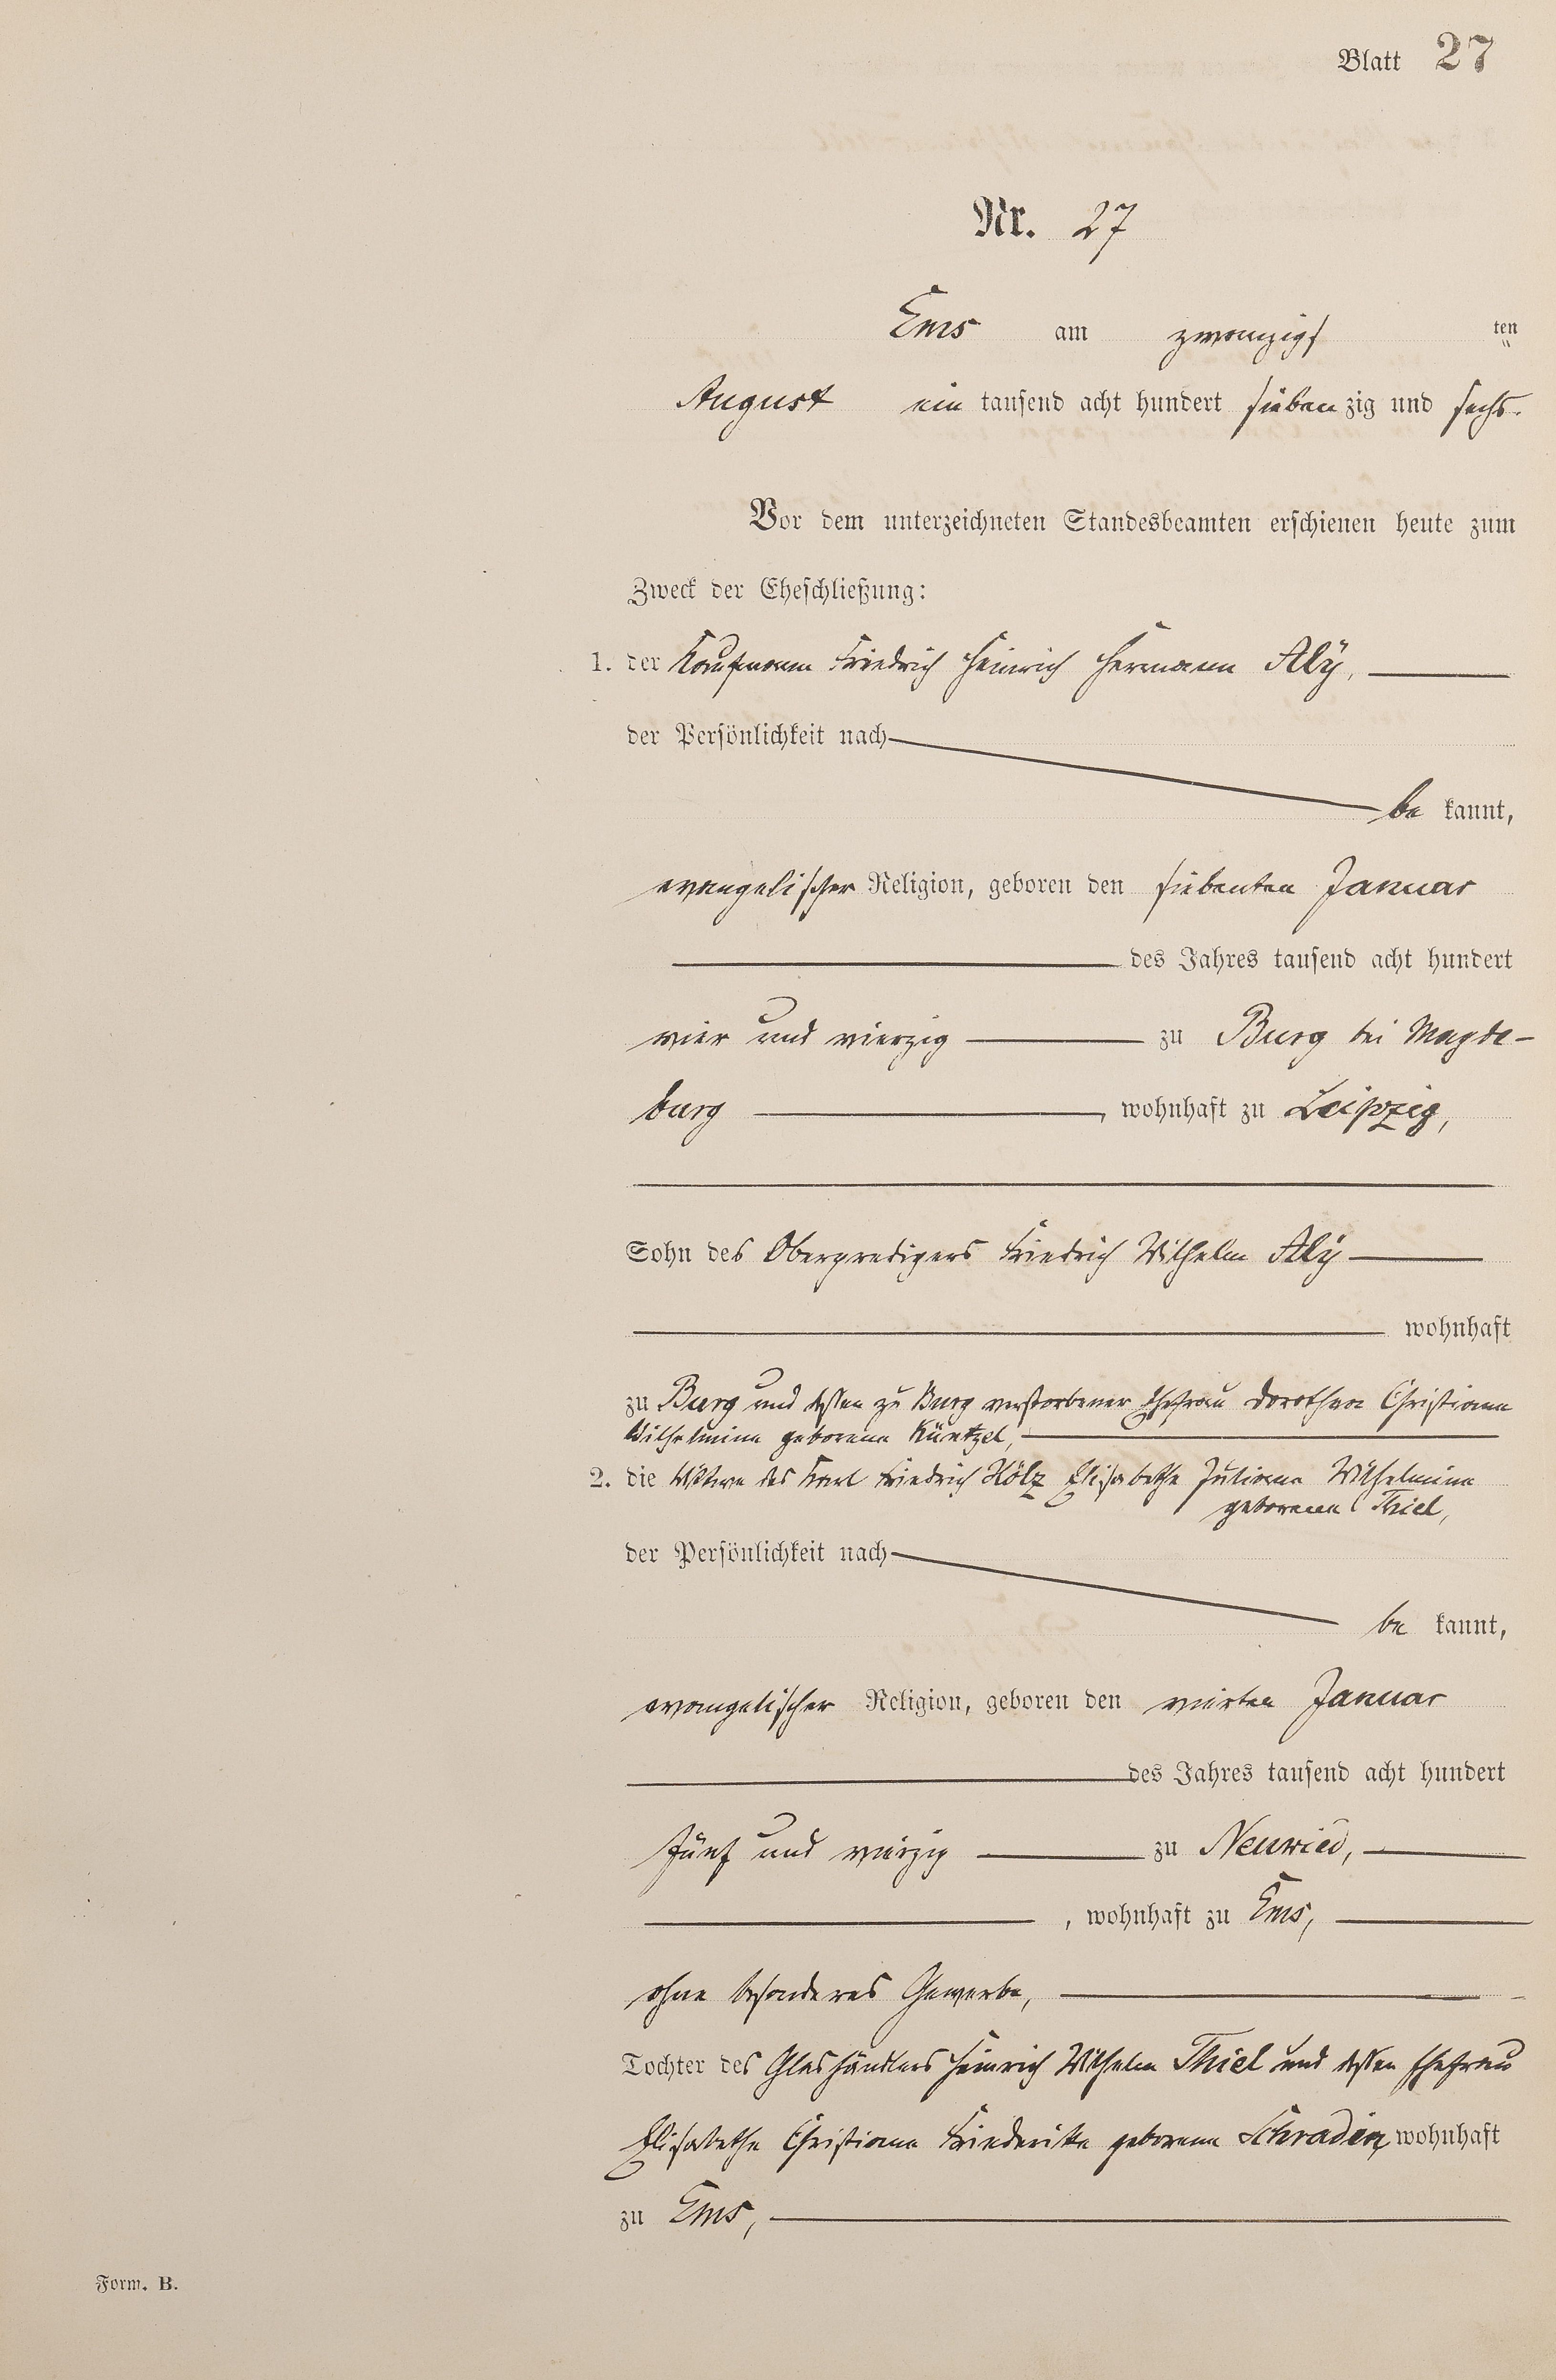 Blatt 27
Nr. 27
Ems am zwanzigsten
August ein tausend acht hundert siebenzig und sechs.
Vor dem unterzeichneten Standesbeamten erschienen heute zum
Zweck der Eheschließung:
1. der Kaufmann Friedrich Heinrich Hermann Alÿ,
der Persönlichkeit nach
be kannt,
evangelischer Religion, geboren den siebenten Januar
des Jahres tausend acht hundert
vier und vierzig zu Burg bei Magde-
burg, wohnhaft zu Leipzig,
Sohn des Oberpredigers Friedrich Wilhelm Alÿ
wohnhaft
zu Burg und dessen zu Burg verstorbener Ehefrau Dorothea Christiane
Wilhelmine geborene Küntzel,
2. die Wittwe des Karl Friedrich Hölz Elisabethe Juliane Wilhelmine
geborene Thiel,
der Persönlichkeit nach
be kannt,
evangelischer Religion, geboren den vierten Januar
des Jahres tausend acht hundert
fünf und vierzig zu Neuwied,
, wohnhaft zu Ems,
ohne besonderes Gewerbe,
Tochter des Glashändlers Heinrich Wilhelm Thiel und dessen Ehefrau
Elisabethe Christiane Friederike geborene Schradin, wohnhaft
zu Ems,
Form. B.